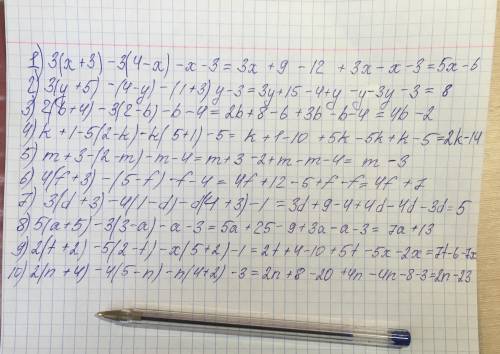 1) 3(x+3) -3(4-x) -x-3 = 3x +9 -12 +3x -x-3 =5x-6
2) 3(y+5) -(4-y) -(1+3) y-3=3y+15-4+y -y-3y-3 = 8
3) 2(b+4) -3(2-b) -b-4=2b+8-6+3b-b-4=4b-2
4) k+1-5(2-k)-k(5+1)-5= k+1-10 +5k-5k+k-5=2k-14
5) m+3-(2-m)-m-4=m+3-2+m-m-4= m-3
6) 4(f+3) -(5-f) -f-4=4f+12-5+f-f=4f+7
7) 3(d+3)-4(1-d)-d(4+3)-1=3d+9-4+4d-4d-3d=5
8) 5(a+5)-3(3-a)-a-3=5a+25-9+3a-a-3= 7a+13
9) 2(t+2) -5(2-t)-x(5+2)-1=2t+4-10+5t-5x-2x=7t-6-7x
10) 2(n+4) -4(5-n)-n(4+2)-3=2n+8-20+4n-4n-8-3=2n-23